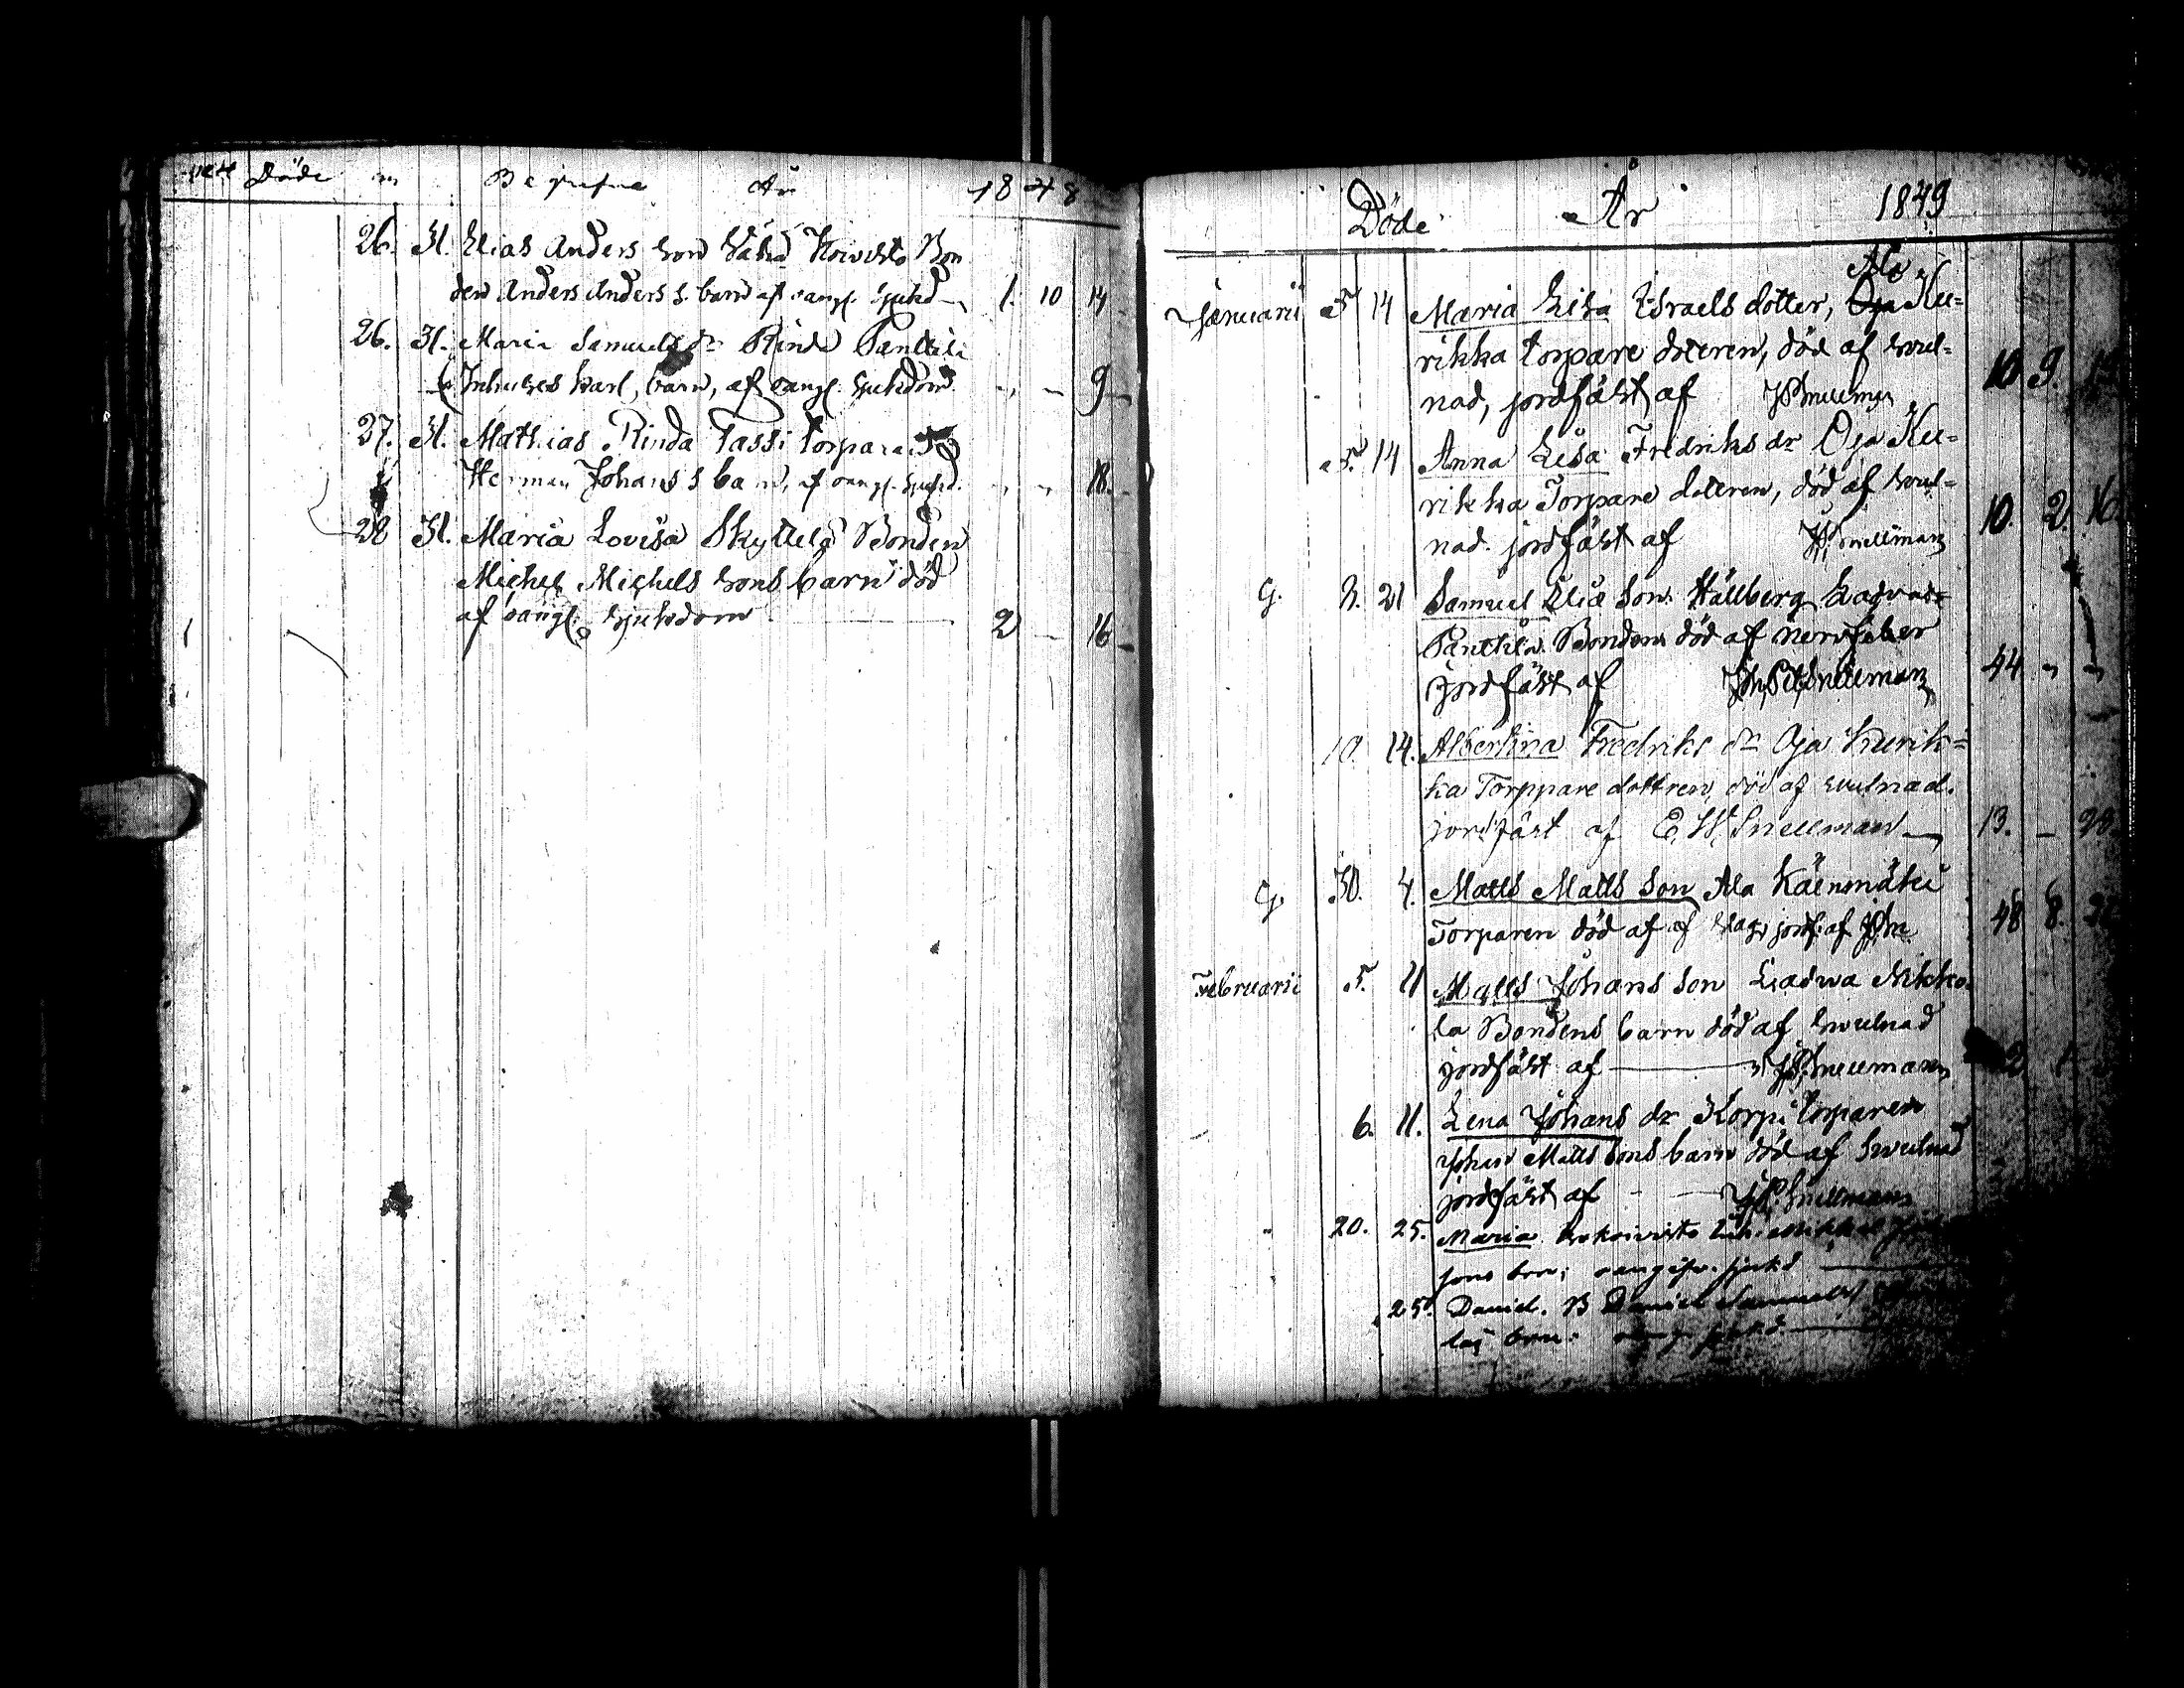 Döde Begrafne År 1848
26. 31. Elias Anders son Vähä Koivisto Bon
den Anders Anders s. barn af oangf. sjukd 1. 10 14
26. 31. Maria Samuels dr Rinda Panttila
Inhuses karl, barn, af oangf. sjukdom " — 9
27. 31. Mathias Rinda Passi Torpare
Herman Johans s barn, af oangf. sjukd. " " 18.
28 31. Maria Lovisa Skyttelä Bonden
Michel Michels sons barn död
af oangf. sjukdom 2 — 16
Döde År 1849
Ala
Januarii 5 14 Maria Lisa Israels dotter, Oja Ku=
rikka torpare dotteren, död af svul=
nad, jordfäst af JP Snellman 10 9.
5. 14 Anna Lisa Fredriks dr Oja Ku=
rikka Torpare dotteren, död af svul=
nad. jordfäst af JP Snellman 10. 2. 16.
G. 21 Samuel Elia Son Hållberg
Panttila Bonden död af nervfeber
jordfäst af Joh Pet Snellman 44 " "
10. 14. Albertina Fredriks dr Oja Kurik=
ka Torppare dottren, död af svulnad.
jordfäst af E. W. Snellman 13. — 23.
G. 30. 4. Matts Matts son Ala Käenmäki
Torparen död af af jordf. af 48 8.
Februarii 5. 11 Matts Johans son Ladwa Nikko
la Bondens barn död af swulnad
jordfäst af JP Snellman
6. 11. Lena Johans dr Korpi torparen
Johan Matts sons barn död af swulnad
jordfäst af JP Snellman
20. 25. Maria
sons brn; oangifv. sjukd
25. Daniel. B Daniel Samuels
brn: